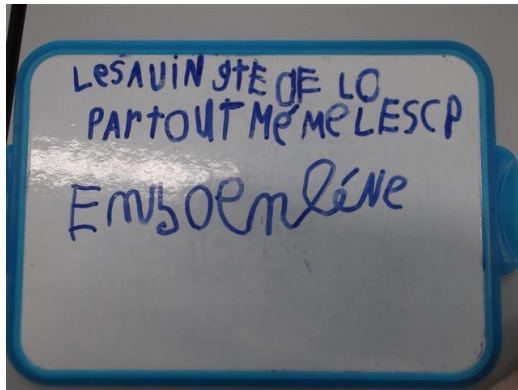 LeSAUiN gtE DE LO
PARTOUT MéMe LESCP
EmboenléNe